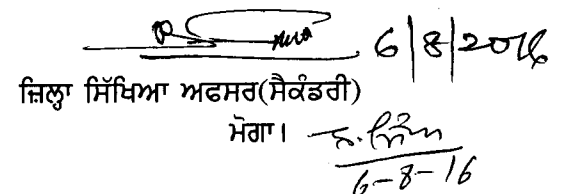 6/8/2016
ਜ਼ਿਲ੍ਹਾ ਸਿੱਖਿਆ ਅਫਸਰ(ਸੈਕੰਡਰੀ)
ਮੋਗਾ।
6-8-16